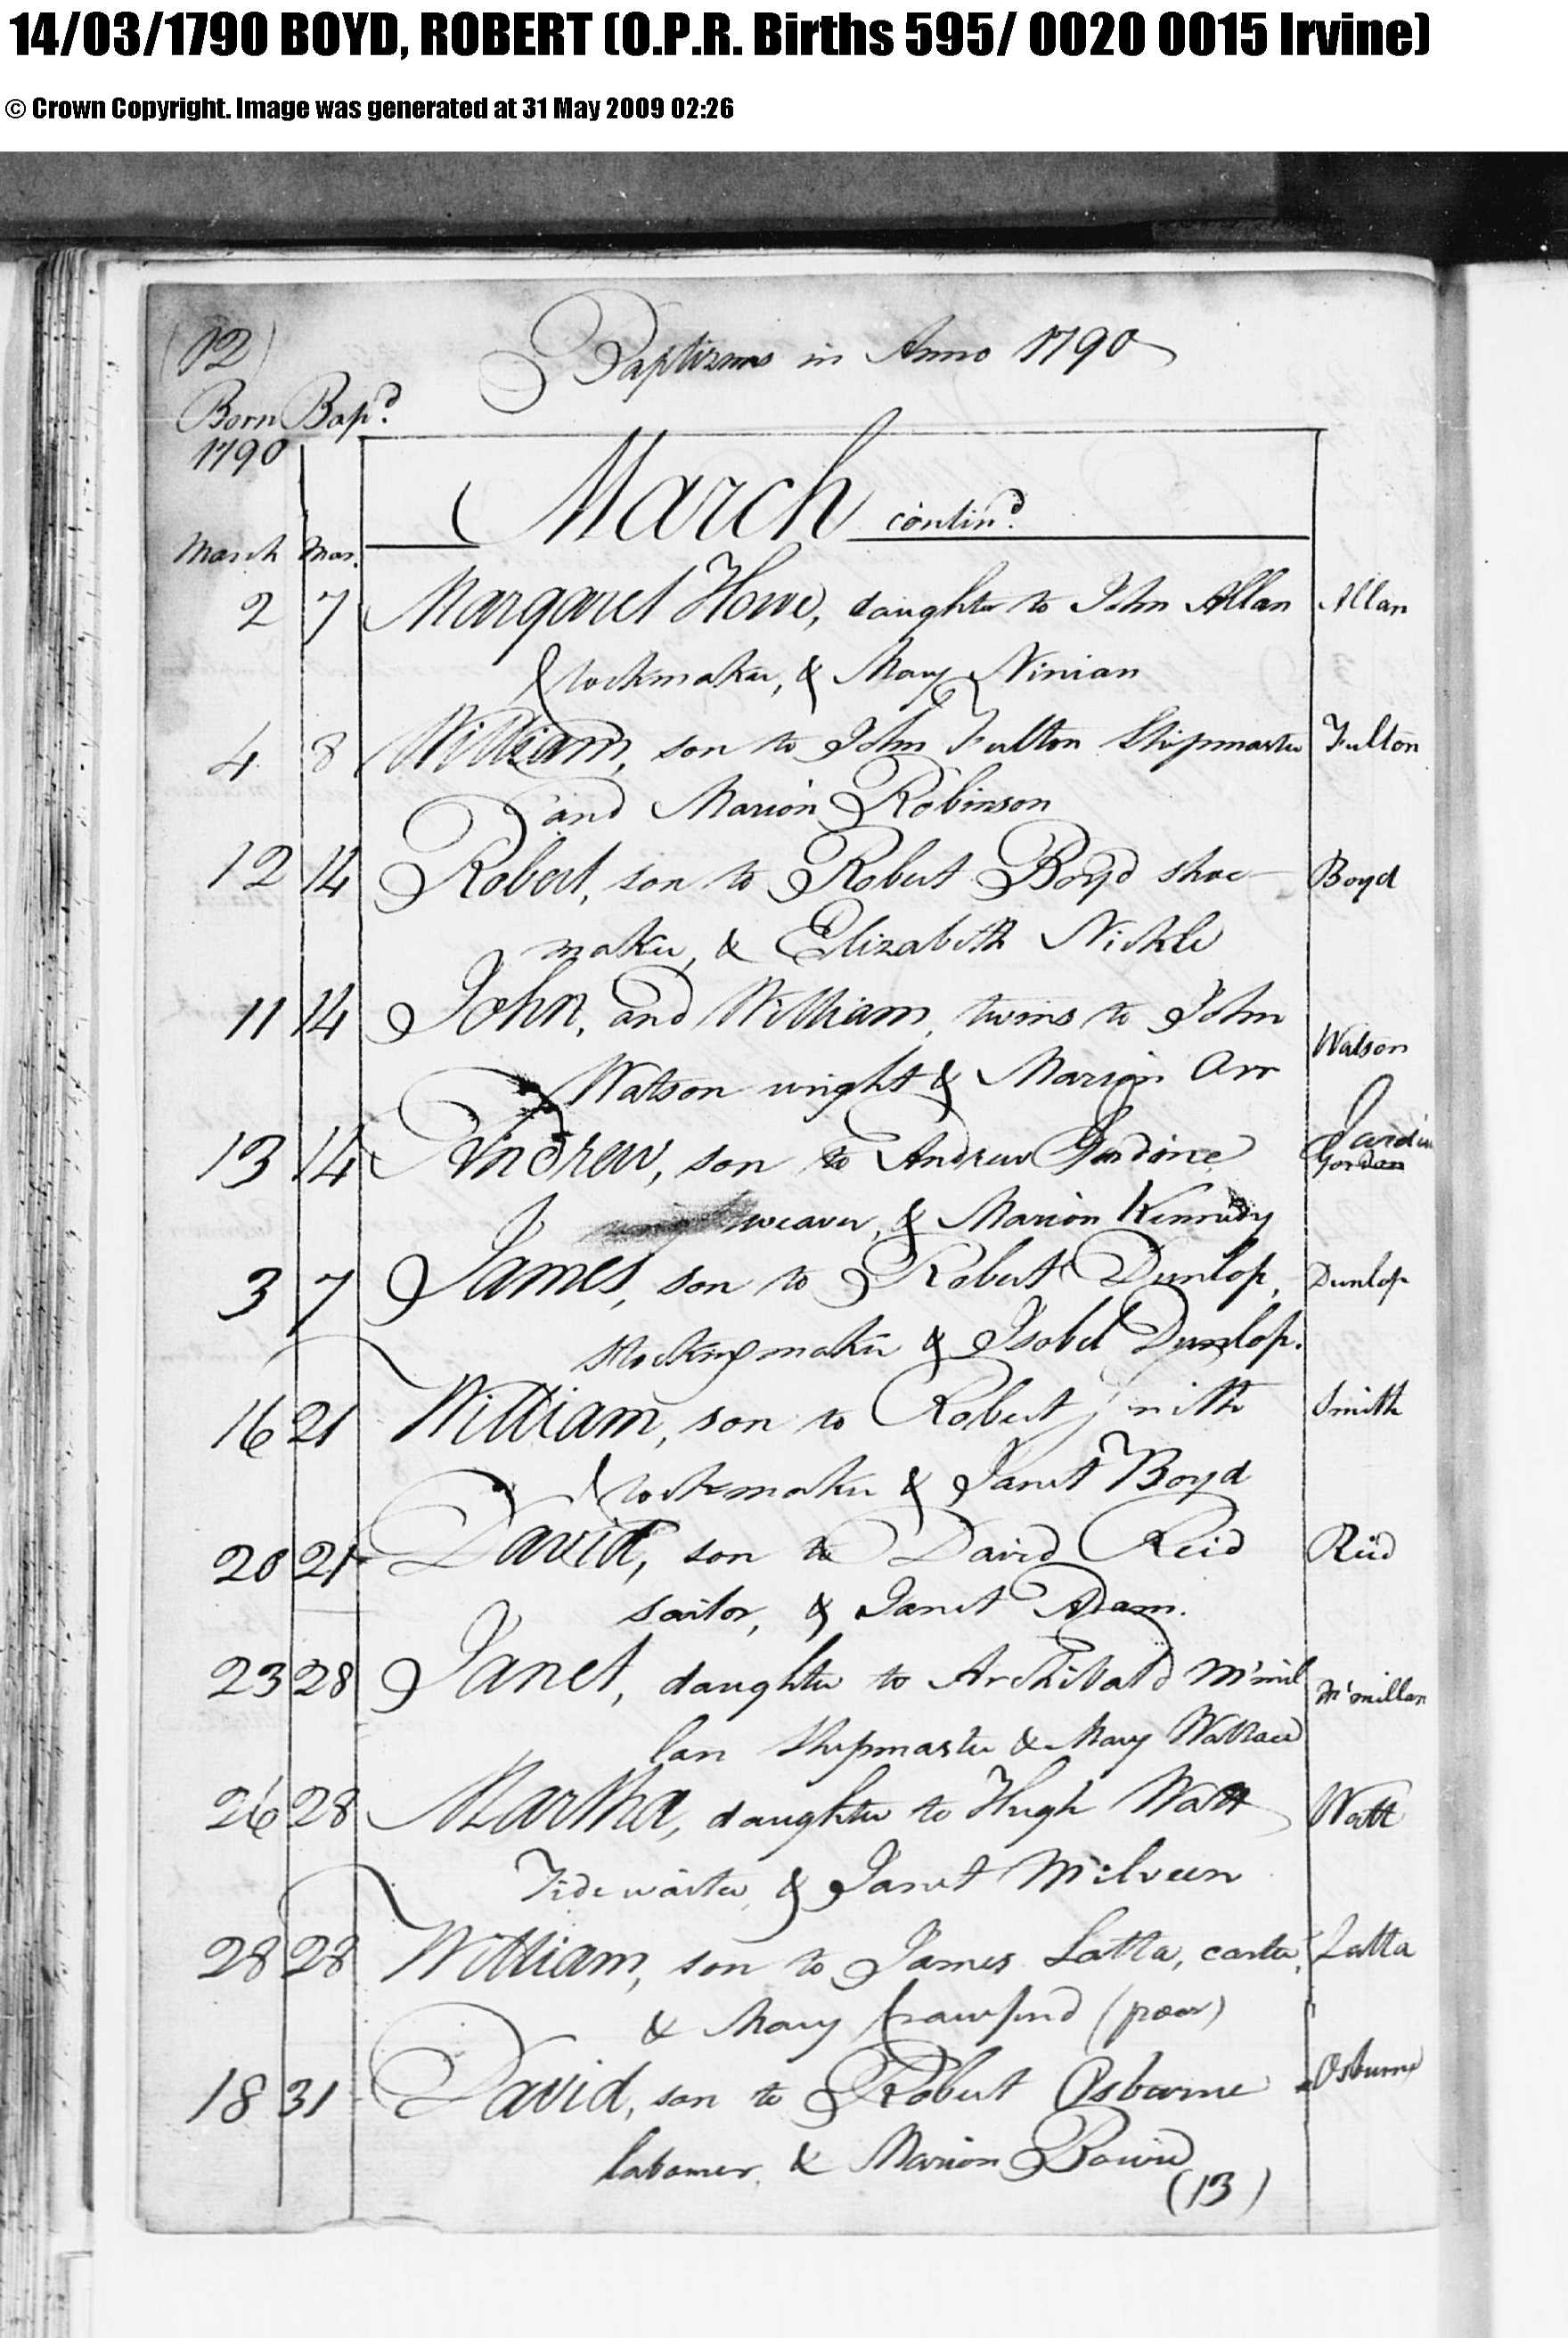 14/03/1790 BOYD, ROBERT (O.P.R. Births 595/ 0020 0015 Irvine)
© Crown Copyright. Image was generated at 31 May 2009 02:26
(12)
Baptizms in Anno 1790
Born Bapd.
1790
March contind.
March Mar.
2 7 Margaret Howe, daughter to John Allan Allan
Clockmaker, & Mary Ninian
4 8 William, son to John Fulton Shipmaster Fulton
and Marion Robinson
12 14 Robert, son to Robert Boyd shoe- Boyd
maker, & Elizabeth Nickle
11 14 John, and William, twins to John
Watson wright & Marion Orr Watson
13 14 Andrew, son to Andrew Jardine Jardin
Gordon
weaver, & Marion Kennedy
3 7 James, son to Robert Dunlop, Dunlop
Stockingmaker & Isobel Dunlop.
16 21 William, son to Robert Smith Smith
Clockmaker & Janet Boyd
20 21 David, son to David Reid Reid
sailor, & Janet Adam.
23 28 Janet, daughter to Archibald M'mil M'millan
lan Shipmaster & Mary Wallace
26 28 Martha, daughter to Hugh Watt Watt
Tidewaiter, & Janet Milveen
28 28 William, son to James Latta, carter, Latta
& Mary Crawfurd (poor)
18 31 David, son to Robert Osburne Osburne
labourer, & Marion Bowie
(13)